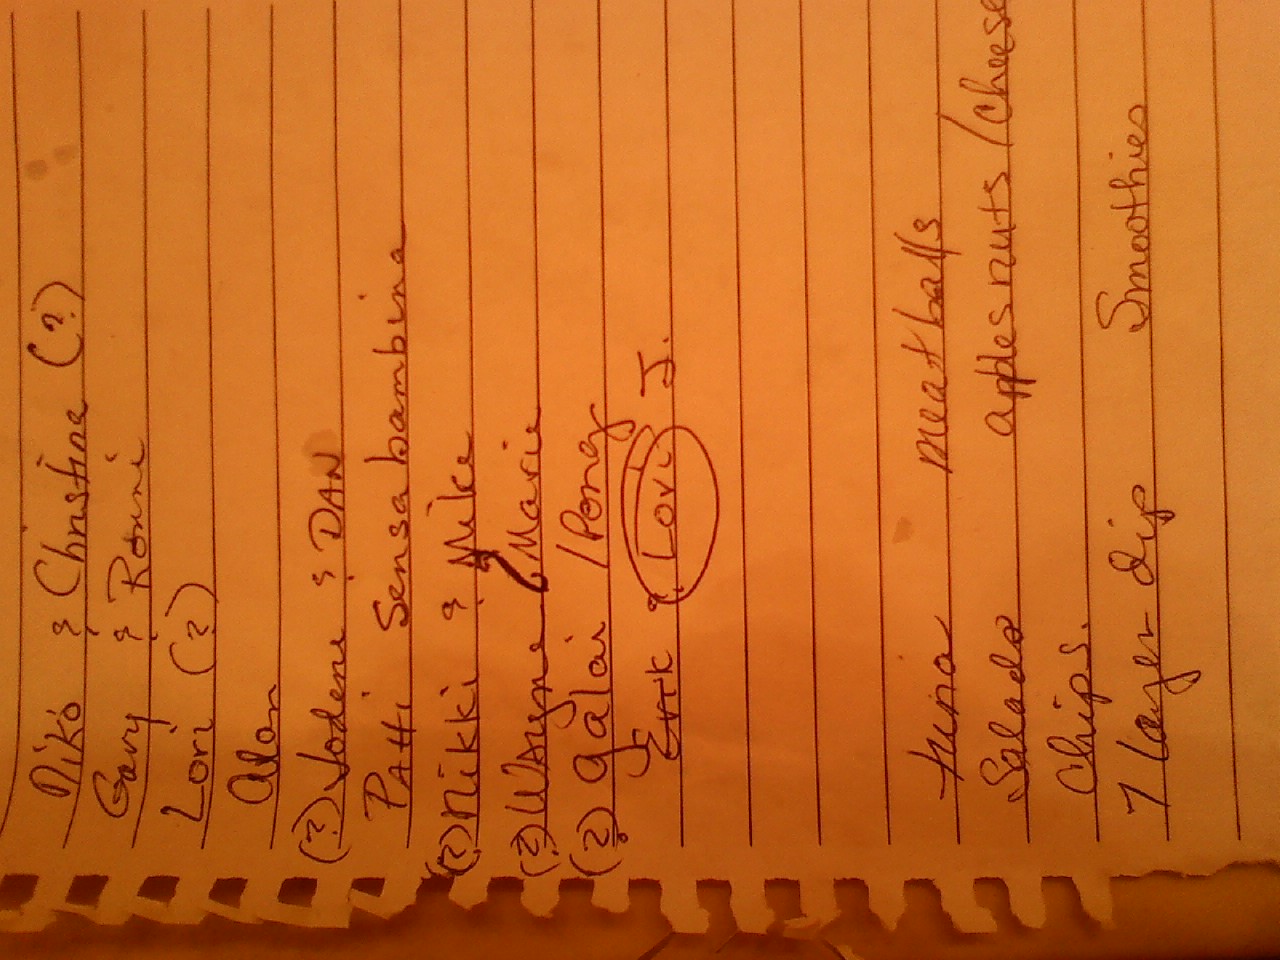 Niko & Christine (?)
Gary & Ronni
Lori (?)
Alan
(?) Jodeni & DAN
PAtti Sensabambina
(?) Nikki & Mike
(?) WAyne / Marie
(?) Galai / Poney
Erik & Lori J.
tuna meatballs
Salads apples nuts / cheese
Chips.
7 layer dip Smoothies